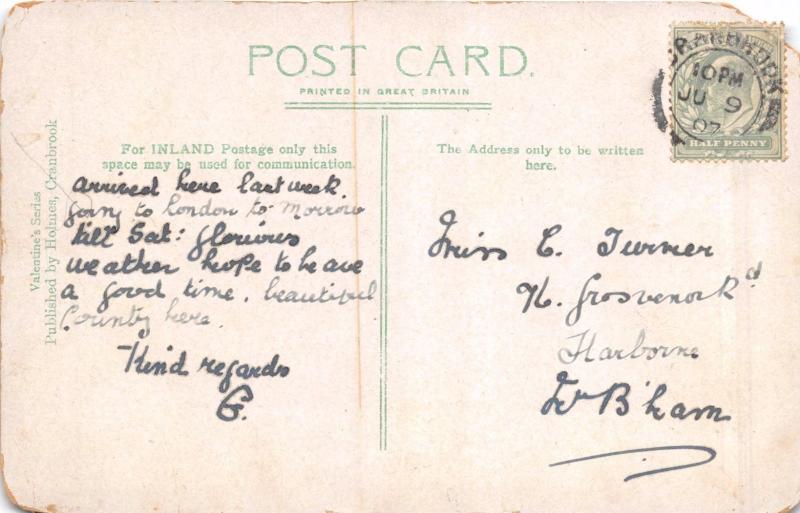 POST CARD.
PRINTED IN GREAT BRITAIN
For INLAND Postage only this
space may be used for communication.
The Address only to be written
here.
Valentine's Series
Published by Holmes, Cranbrook
CRANBROOK
10 PM
JU 9
07
HALF PENNY
arrived here last week.
going to London to morrow
till Sat: glorious
weather hope to have
a good time. beautiful
County here.
Kind regards
G.
Miss C. Turner
Grosvenor Rd
Harborne
Nr B'ham